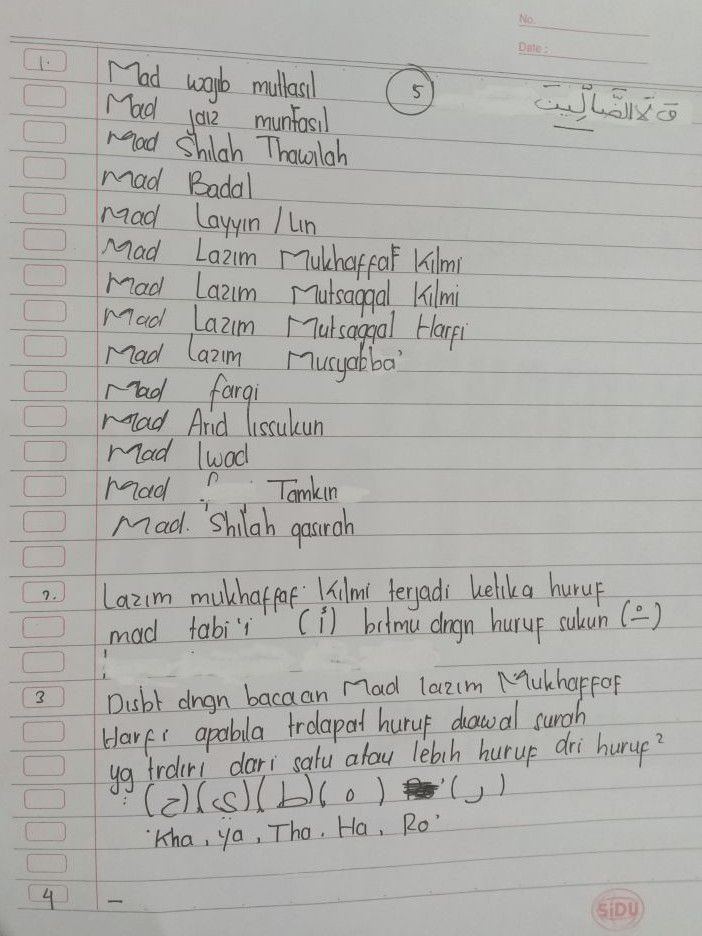 No.
Date :
1. Mad wajib muttasil
5
وَلَا الضَّالِّينَ
Mad jaiz munfasil
Mad Shilah Thawilah
Mad Badal
Mad Layyin / Lin
Mad Lazim Mukhaffaf Kilmi
Mad Lazim Mutsaqqal Kilmi
Mad Lazim Mutsaqqal Harfi
Mad Lazim Musyabba'
Mad farqi
Mad Arid lissukun
Mad Iwad
Mad Tamkin
Mad. Shilah qasirah
2. Lazim mukhaffaf Kilmi terjadi ketika huruf
mad tabi'i (أ) brtmu dngn huruf sukun
3 Disbt dngn bacaan Mad lazim Mukhaffaf
Harfi apabila trdapat huruf diawal surah
yg trdiri dari satu atau lebih huruf dri huruf²
'Kha, ya, Tha, Ha, Ro'
4 –
SIDU